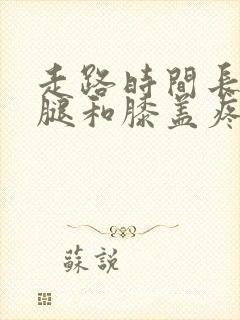 走路時間長
腿和膝盖疼
蘇説